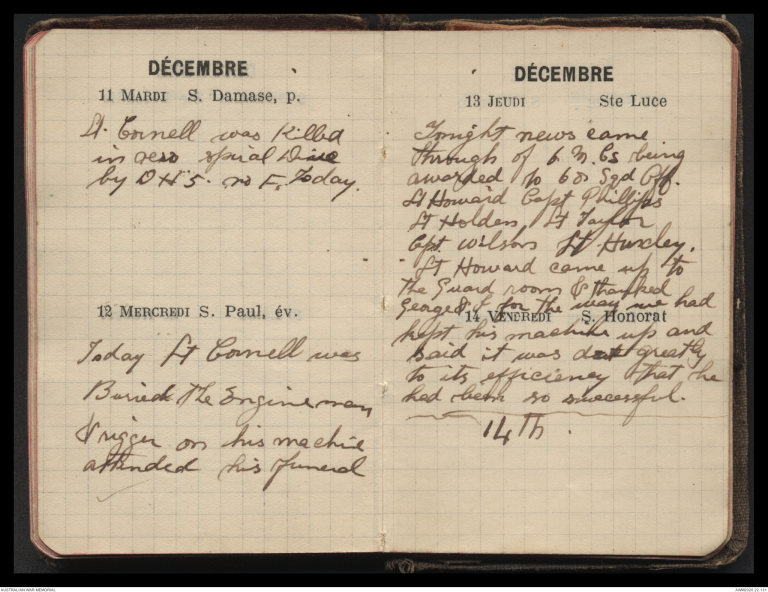 DÉCEMBRE
11 MARDI S. Damase, p.
Lt. Cornell was Killed
in spiral Dive
by D H 5. no F. Today.
12 MERCREDI S. Paul, év.
Today Lt Cornell was
Buried The Engine man
& rigger on his machine
attended his funeral
DÉCEMBRE
13 JEUDI Ste Luce
Tonight news came
through of 6 M.Cs being
awarded to 68 Sqd Off.
Lt Howard Capt Phillipps
Lt Holden Lt Taylor
Cpt. Wilson Lt Huxley.
Lt Howard came up to
the Guard room & thanked
George & I for the way we had
14 VENDREDI S. Honorat
kept his machine up and
said it was greatly
to its efficiency that he
had been so successful.
14th.
AUSTRALIAN WAR MEMORIAL